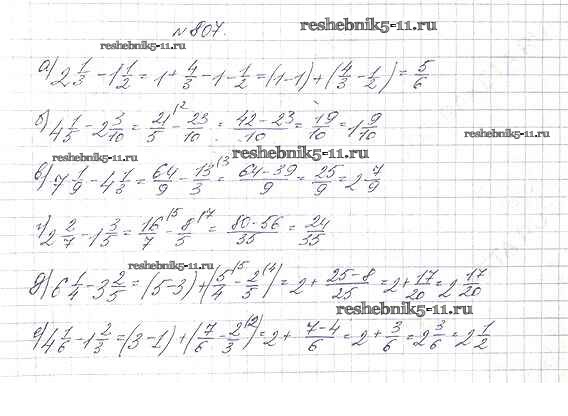 № 807.
reshebnik5-11.ru
reshebnik5-11.ru
а) 2 1/3 - 1 1/2 = 1 + 4/3 - 1 - 1/2 = (1-1) + (4/3 - 1/2) = 5/6
б) 4 1/5 - 2 3/10 = 21/5 (2 - 23/10 = (42-23)/10 = 19/10 = 1 9/10
reshebnik5-11.ru
reshebnik5-11.ru
reshebnik5-11.ru
в) 7 1/9 - 4 1/3 = 64/9 - 13/3 (3 = (64-39)/9 = 25/9 = 2 7/9
г) 2 2/7 - 1 3/5 = 16/7 (5 - 8/5 (7 = (80-56)/35 = 24/35
reshebnik5-11.ru
д) 6 1/4 - 3 2/5 = (5-3) + (5/4 (5 - 2/5 (4) = 2 + (25-8)/25 = 2 + 17/20 = 2 17/20
reshebnik5-11.ru
е) 4 1/6 - 1 2/3 = (3-1) + (7/6 - 2/3 (2) = 2 + (7-4)/6 = 2 + 3/6 = 2 3/6 = 2 1/2